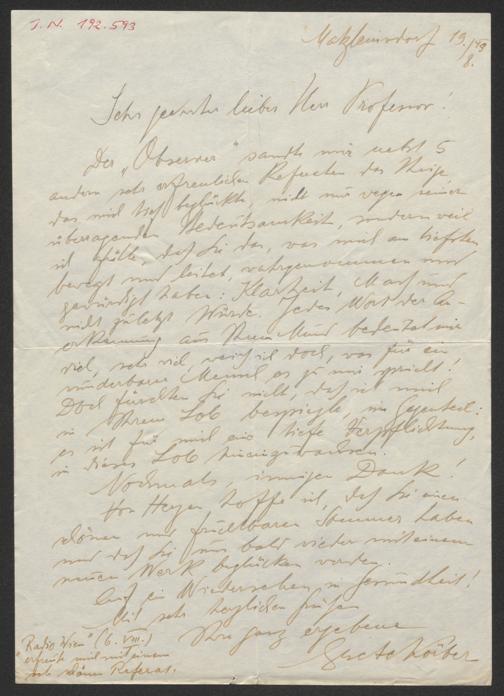 J.N. 192.593
Matzleinsdorf 19./8. 49
Sehr geehrter lieber Herr Professor!
Der "Observer" sandte mir nebst 5
andern sehr erfreulichen Referaten das Ihrige,
das mich tief beglückte, nicht nur wegen seiner
überragenden Bedeutsamkeit, sondern weil
ich fühle, daß Sie das, was mich am tiefsten
bewegt und leitet, wahrgenommen und
gewürdigt haben: Klarheit, Maß und
nicht zuletzt Würde. Jedes Wort der An-
erkennung aus Ihrem Mund bedeutet mir
viel, sehr viel, weiß ich doch, was für ein
wunderbarer Mensch es zu mir spricht!
Doch fürchten Sie nicht, daß ich mich
in Ihrem Lob bespiegle, im Gegenteil:
es ist für mich eine tiefe Verpflichtung,
in dieses Lob hineinzuwachsen.
Nochmals, innigen Dank!
Von Herzen hoffe ich, daß Sie einen
schönen und fruchtbaren Sommer haben
und daß Sie uns bald wieder mit einem
neuen Werk beglücken werden.
Auf ein Wiedersehen in Gesundheit!
Mit sehr herzlichen Grüßen
Ihre ganz ergebene
"Radio Wien" (6. VIII.)
erfreute mich mit einem
sehr schönen Referat.